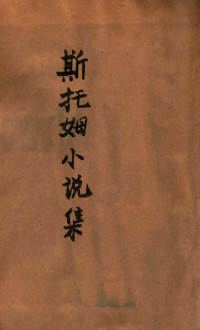 斯托姆小说集